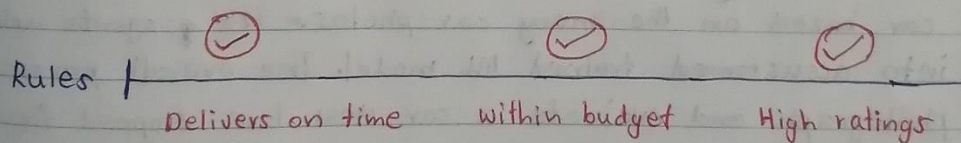 Rules
Delivers on time within budget High ratings